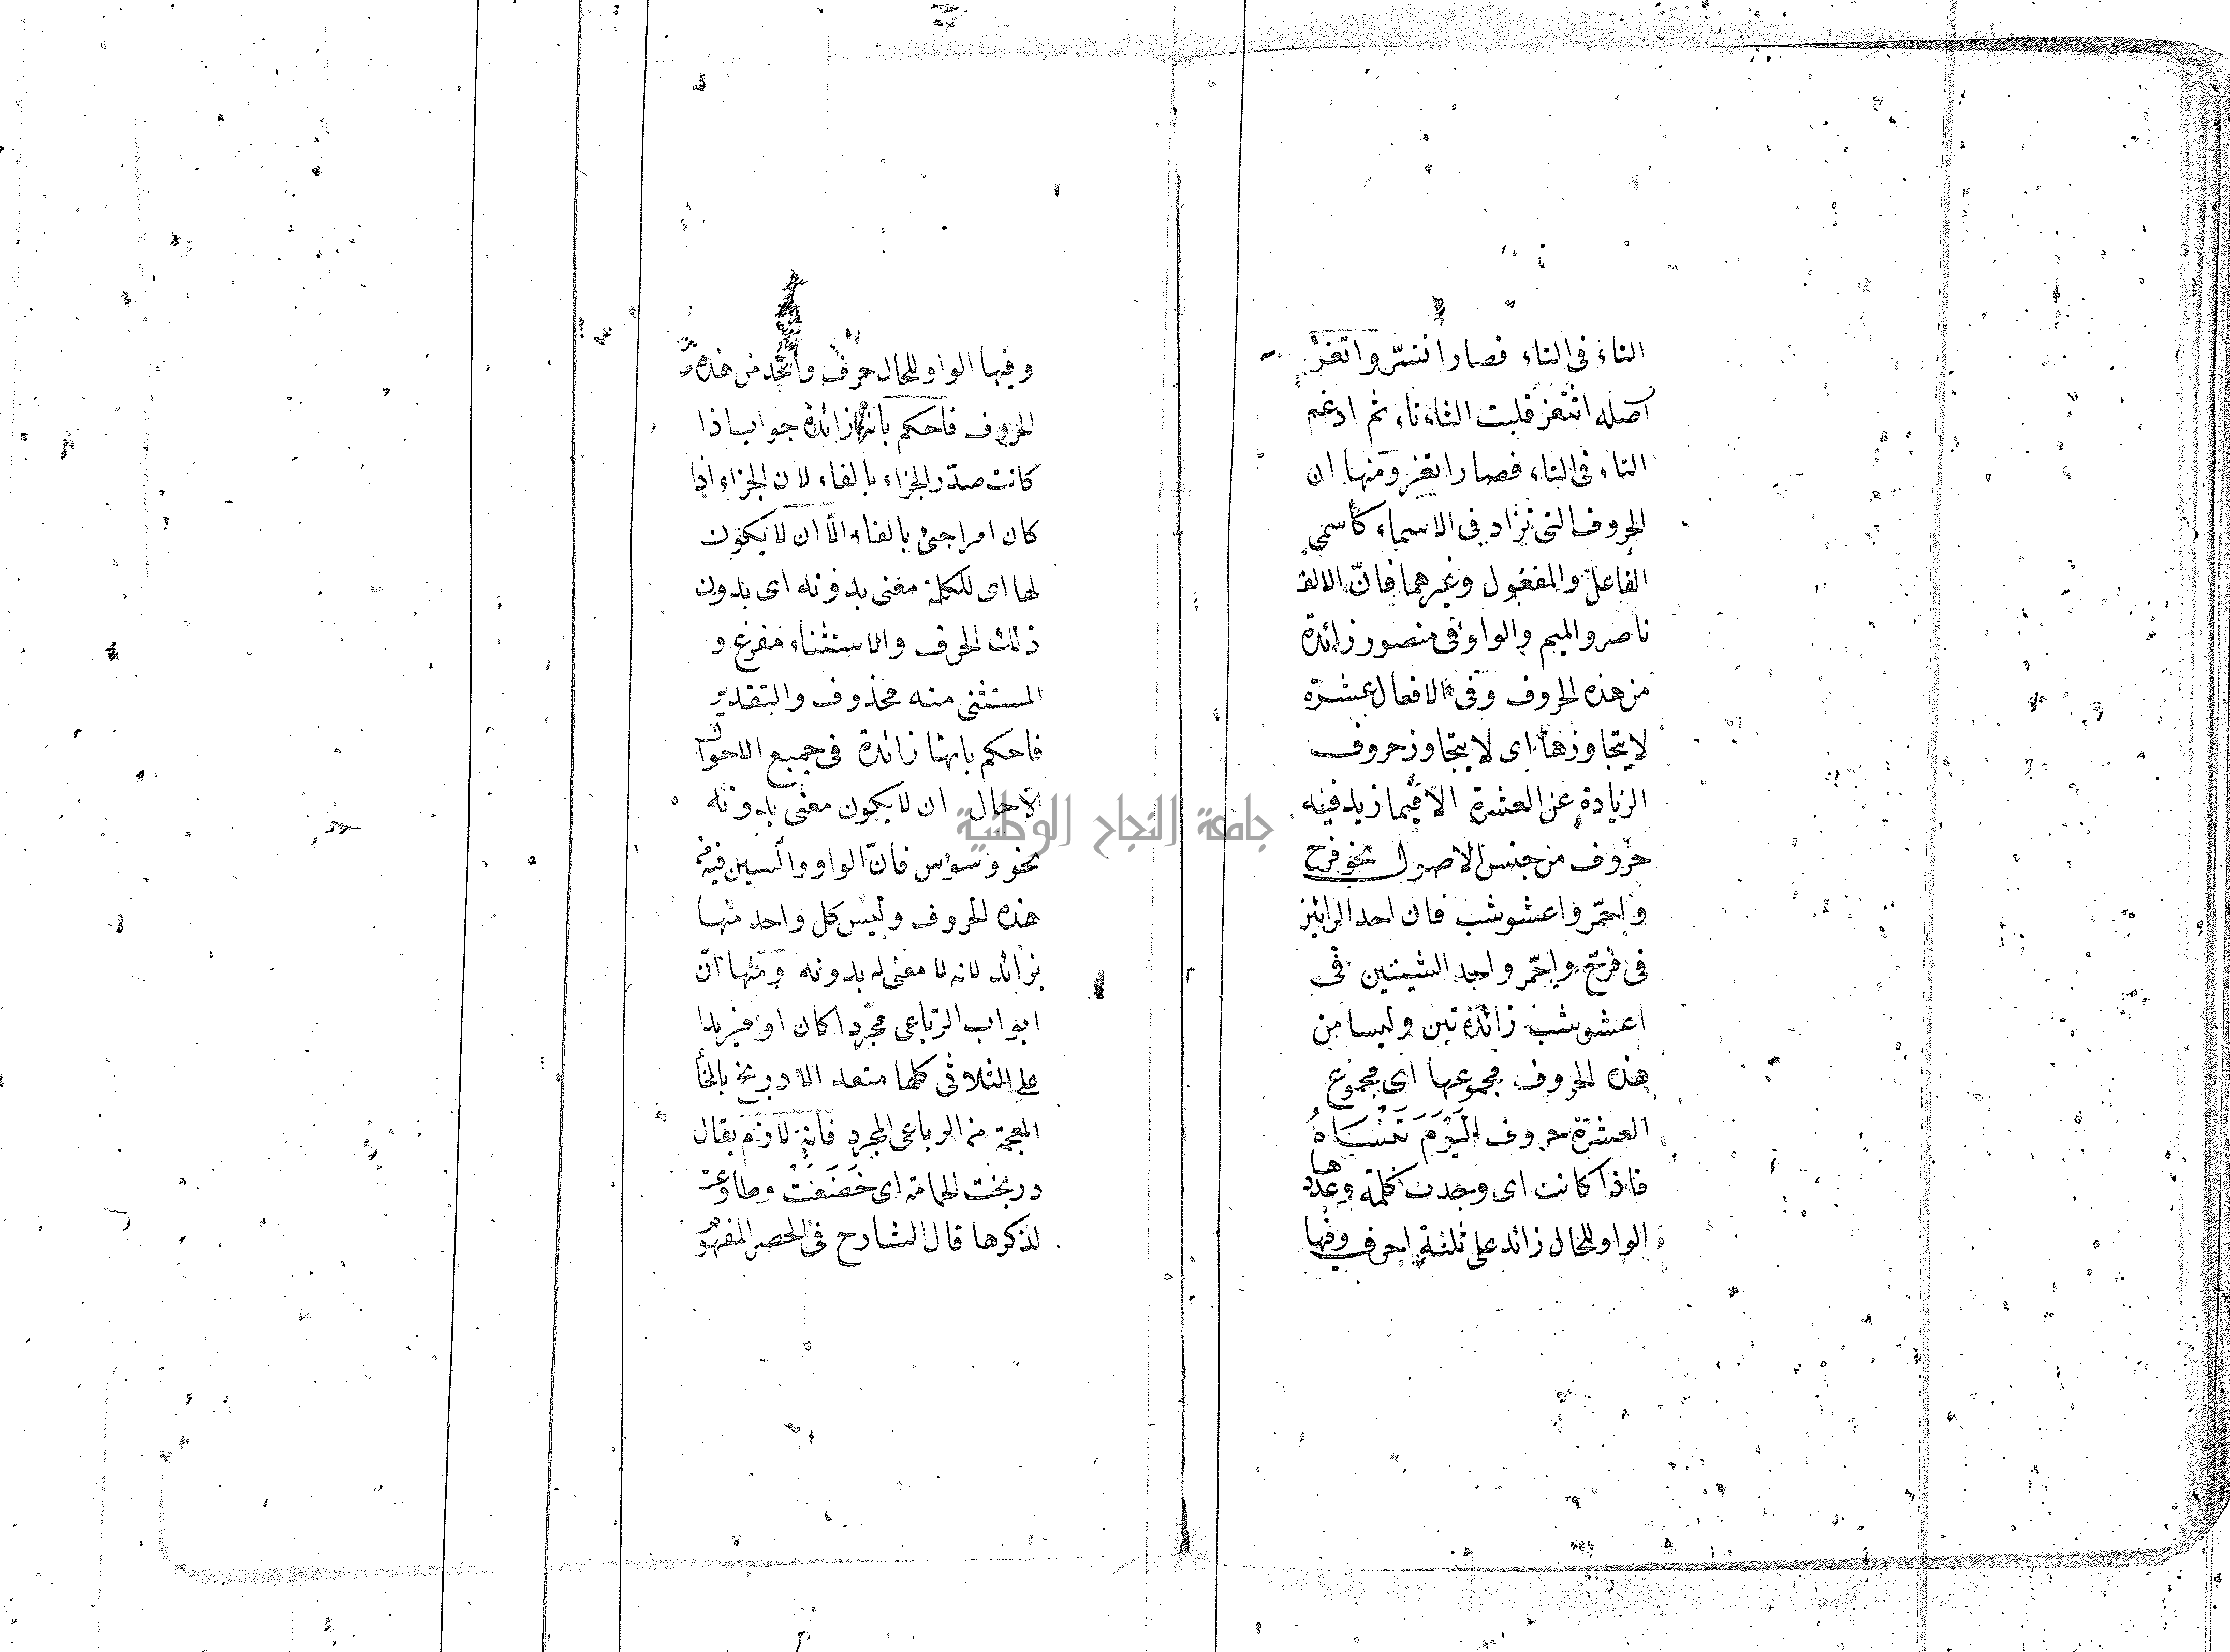 التاء فى التاء فصار اتسر واتغر
اصله اثتغر قلبت الثاء تاء ثم ادغم
التاء فى التاء فصار اتغر ومنها ان
الحروف التى تزاد فى الاسماء كاسمى
الفاعل والمفعول وغيرهما فانّ الالف
ناصر والميم والواو فى منصور زائدة
من هذه الحروف وفى الافعال عشرة
لا يتجاوزها اى لا يتجاوز حروف
الزيادة عن العشرة الا فيما زيد فيه
حروف من جنس الاصول نحو فرح
واحمّر واعشوشب فان احد الرائين
فى فرّح واحمّر واحد الشينين فى
اعشوشب زائدتين وليسا من
هذه الحروف مجموعها اى مجموع
العشرة حروف اَلْيَوْمَ تَنْسَاهُ
فاذا كانت اى وجدت كلمة وعددها
الواو للحال زائد على ثلثة احرف وفيها
وفيها الواو للحال حرف واحد من هذه
الحروف فاحكم بانها زائدة جواب اذا
كانت صدّر الجزاء بالفاء لان الجزاء اذا
كان امرا جئ بالفاء الّا ان لا يكون
لها اى للكلمة معنى بدونه اى بدون
ذلك الحرف والاستثناء مفرغ و
المستثنى منه محذوف والتقدير
فاحكم بانها زائدة فى جميع الاحوال
الّا حال ان لا يكون معنى بدونه
نحو وسوس فانّ الواو والسين فيه من
هذه الحروف وليس كل واحد منها
بزائد لانه لا معنى له بدونه ومنها ان
ابواب الرباعى مجردا كان او مزيدا
على الثلاثى كلها متعد الا دربخ بالخأ
المعجمة من الرباعى المجرد فانه لازم يقال
دربخت الحمامة اى خَضَعَتْ وطاوعت
لذكرها قال الشارح فى الحصر المفهو
جامعة النجاح الوطنية